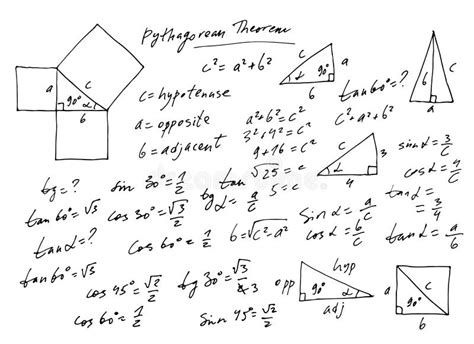 Pythagorean Theorem
c² = a² + b²
c = hypotenuse
a = opposite
b = adjacent
a c
90° α
b
c a
α 90°
b
tan 60° = ?
b
a
a² + b² = c²
3² + 4² = c²
9 + 16 = c²
√25 = c
5 = c
c² = a² + b²
c 3
α
4
sin α = 3/c
cos α = 4/c
tan α = 3/4
tg = ?
tan 60° = √3
tan α = ?
tan 60° = √3
sin 30° = 1/2
cos 30° = √3/2
cos 60° = 1/2
cos 45° = √2/2
cos 60° = 1/2
tan
tg α = a/c
b = √c² - a²
tg 30° = √3/3
sin 45° = √2/2
sin α = a/c
cos α = b/c
tan α = a/b
opp hyp
90° α
adj
a c
90°
b